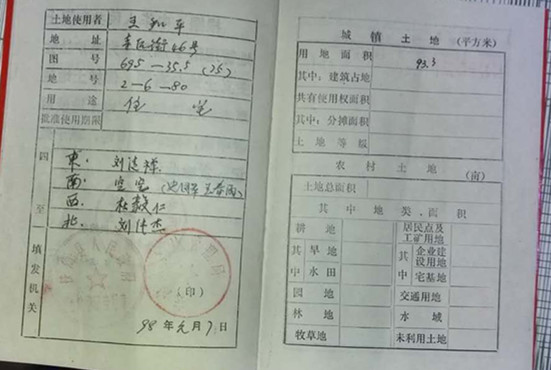 土地使用者 王 平
地 址 街46号
图 号 695—35.5 (25)
地 号 2—6—80
用 途 住 宅
批准使用期限
四至
东. 刘
南. 空宅
西. 杜 仁
北. 刘 杰
填发机关
(印)
98 年 元 月 7 日
城 镇 土 地 (平方米)
用 地 面 积 93.3
其中:建筑占地
共有使用权面积
其中:分摊面积
土 地 等 级
农 村 土 地 (亩)
土地总面积
其 中 地 类 面 积
耕 地 居民点及工矿用地
其中 旱 地 其中 企业建设用地
水 田 宅基地
园 地 交通用地
林 地 水 域
牧草地 未利用土地